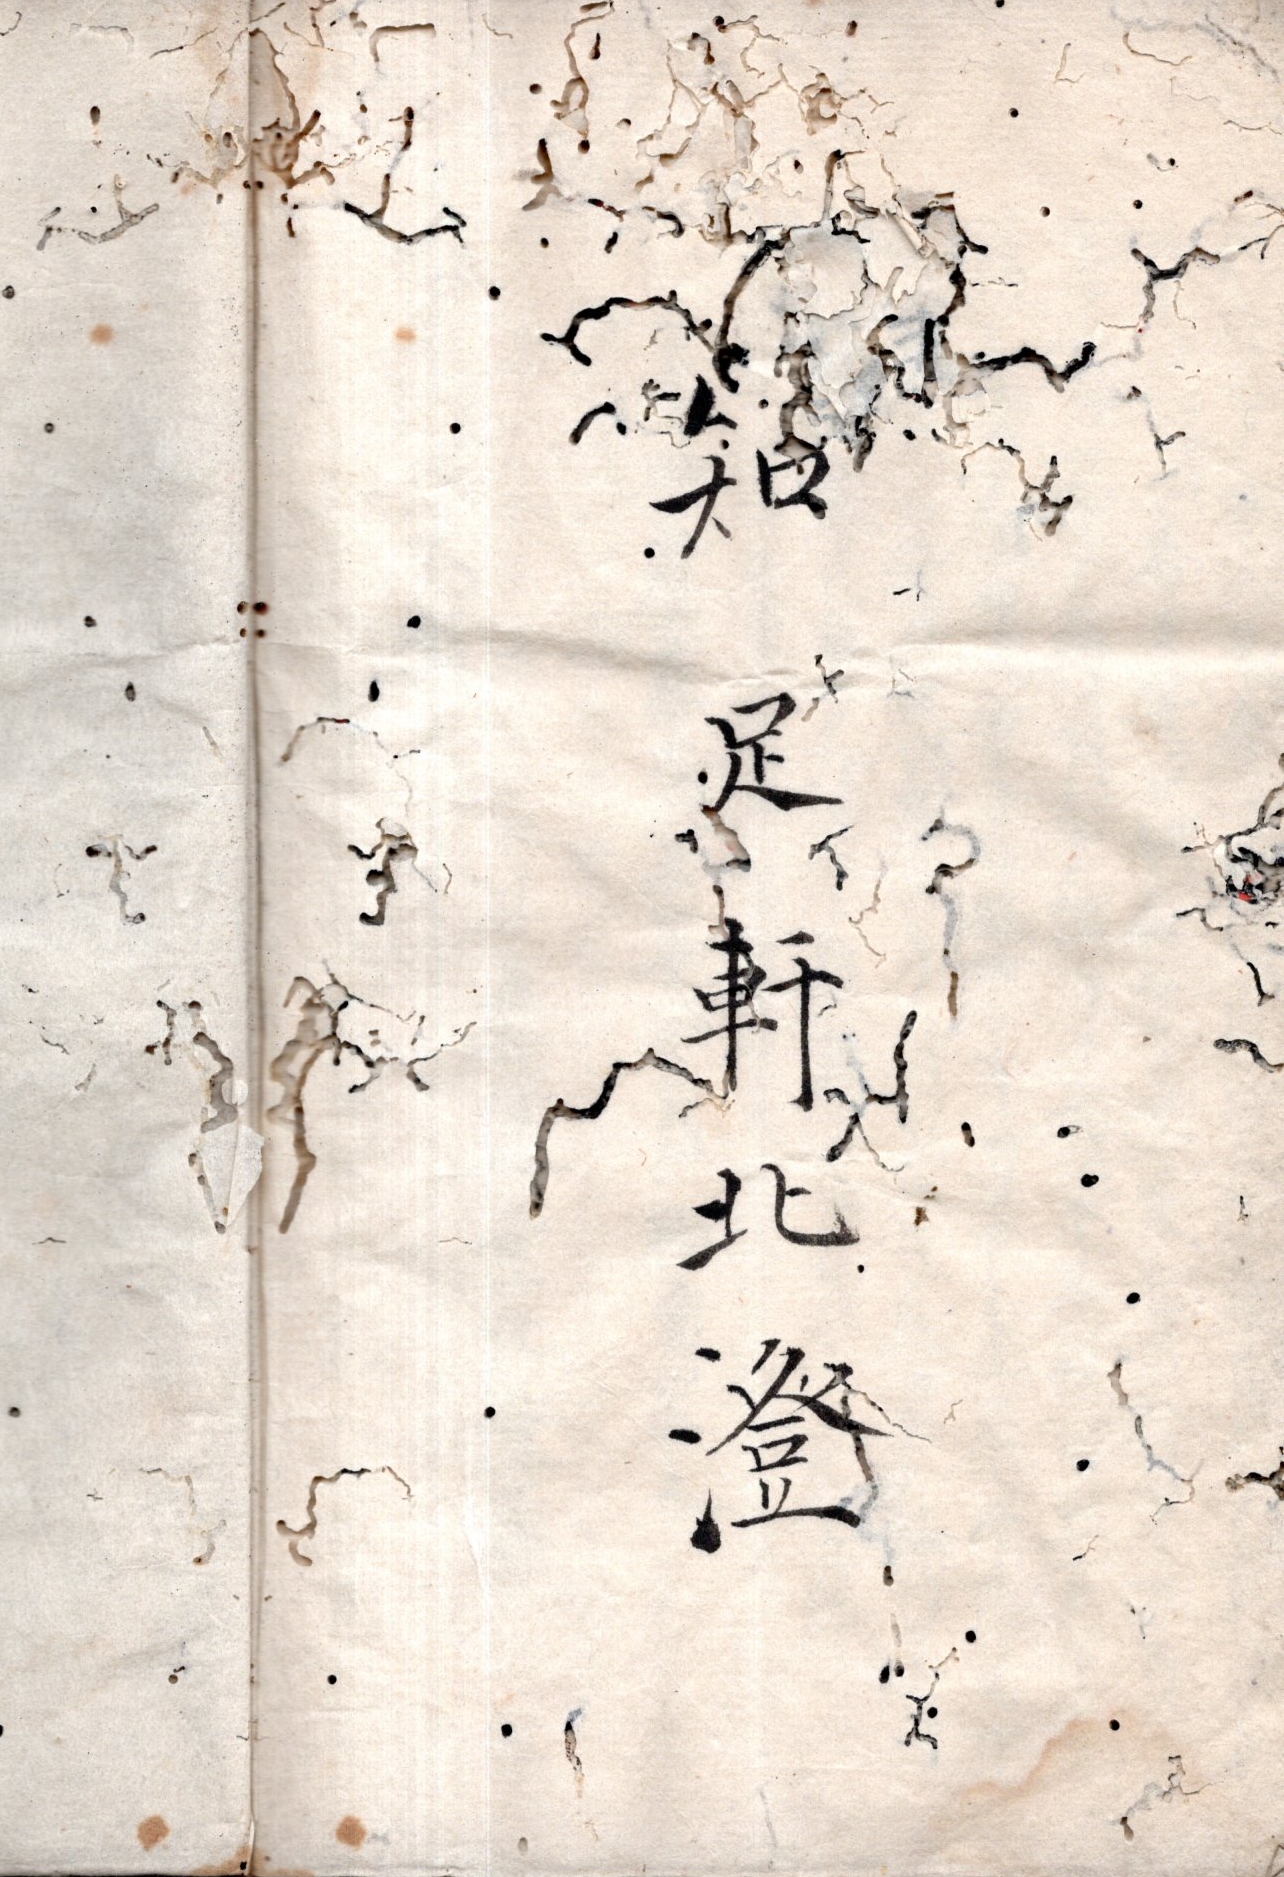 知足軒北澄